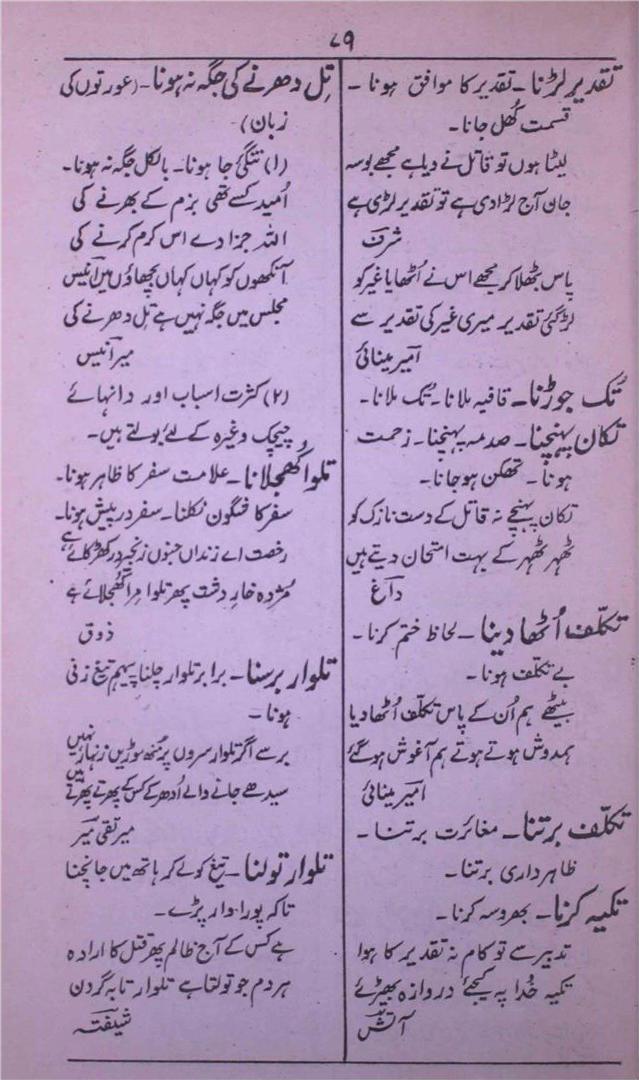 ۷۹
تقدیر لڑنا۔ تقدیر کا موافق ہونا ۔
قسمت کُھل جانا۔
لیٹا ہوں تو قاتل نے دیا ہے مجھے بوسہ
جان آج لڑا دی ہے تو تقدیر لڑی ہے
شرف
پاس بٹھلا کر مجھے اس نے اُٹھایا غیر کو
لڑ گئی تقدیر میری غیر کی تقدیر سے
امیر مینائی
تُک جوڑنا۔ قافیہ ملانا۔ تُک ملانا۔
تکان پہنچنا۔ صدمہ پہنچنا۔ زحمت
ہونا ۔ تھکن ہو جانا۔
تکان پہنچے نہ قاتل کے دست نازک کو
ٹھہر ٹھہر کے بہت امتحان دیتے ہیں
داغ
تکلّف اُٹھا دینا ۔ لحاظ ختم کرنا ۔
بے تکلف ہونا ۔
بیٹھے ہم اُن کے پاس تکلّف اُٹھا دیا
ہمدوش ہوتے ہوتے ہم آغوش ہوگئے
امیر مینائی
تکلّف برتنا۔ مغائرت برتنا ۔
ظاہرداری برتنا۔
تکیہ کرنا۔ بھروسہ کرنا ۔
تدبیر سے تو کام نہ تقدیر کا ہوا
تکیہ خُدا پہ کیجئے دروازہ بھیڑیے
آتش
تِل دھرنے کی جگہ نہ ہونا۔ (عورتوں کی
زبان)۔
(۱) تنگیٔ جا ہونا۔ بالکل جگہ نہ ہونا۔
اُمید کسے تھی بزم کے بھرنے کی
اللہ جزا دے اس کرم کرنے کی
آنکھوں کو کہاں کہاں بچھاؤں میں انیس
مجلس میں جگہ نہیں ہے تِل دھرنے کی
میر انیس
(۲) کثرت اسباب اور دانہائے
چیچک وغیرہ کے لئے بولتے ہیں۔
تلوا کُھجلانا۔ علامت سفر کا ظاہر ہونا۔
سفر کا شگون نکلنا۔ سفر درپیش ہونا۔
رخصت اے زنداں جنوں زنجیر در کھڑکائے ہے
مژدہ خارِ دشت پھر تلوا مرا کُھجلائے ہے
ذوق
تلوار برسنا۔ برابر تلوار چلنا پیہم تیغ زنی
ہونا ۔
برسے اگر تلوار سروں پر مُنھ موڑیں زنہار نہیں
سیدھے جانے والے اُدھر کے کس کے پھرتے پھرتے ہیں
میر تقی میر
تلوار تولنا۔ تیغ کو لے کر ہاتھ میں جانچنا
تاکہ پورا وار پڑے۔
ہے کس کے آج ظالم پھر قتل کا ارادہ
ہر دم جو تولتا ہے تلوار تا بہ گردن
شیفتہ